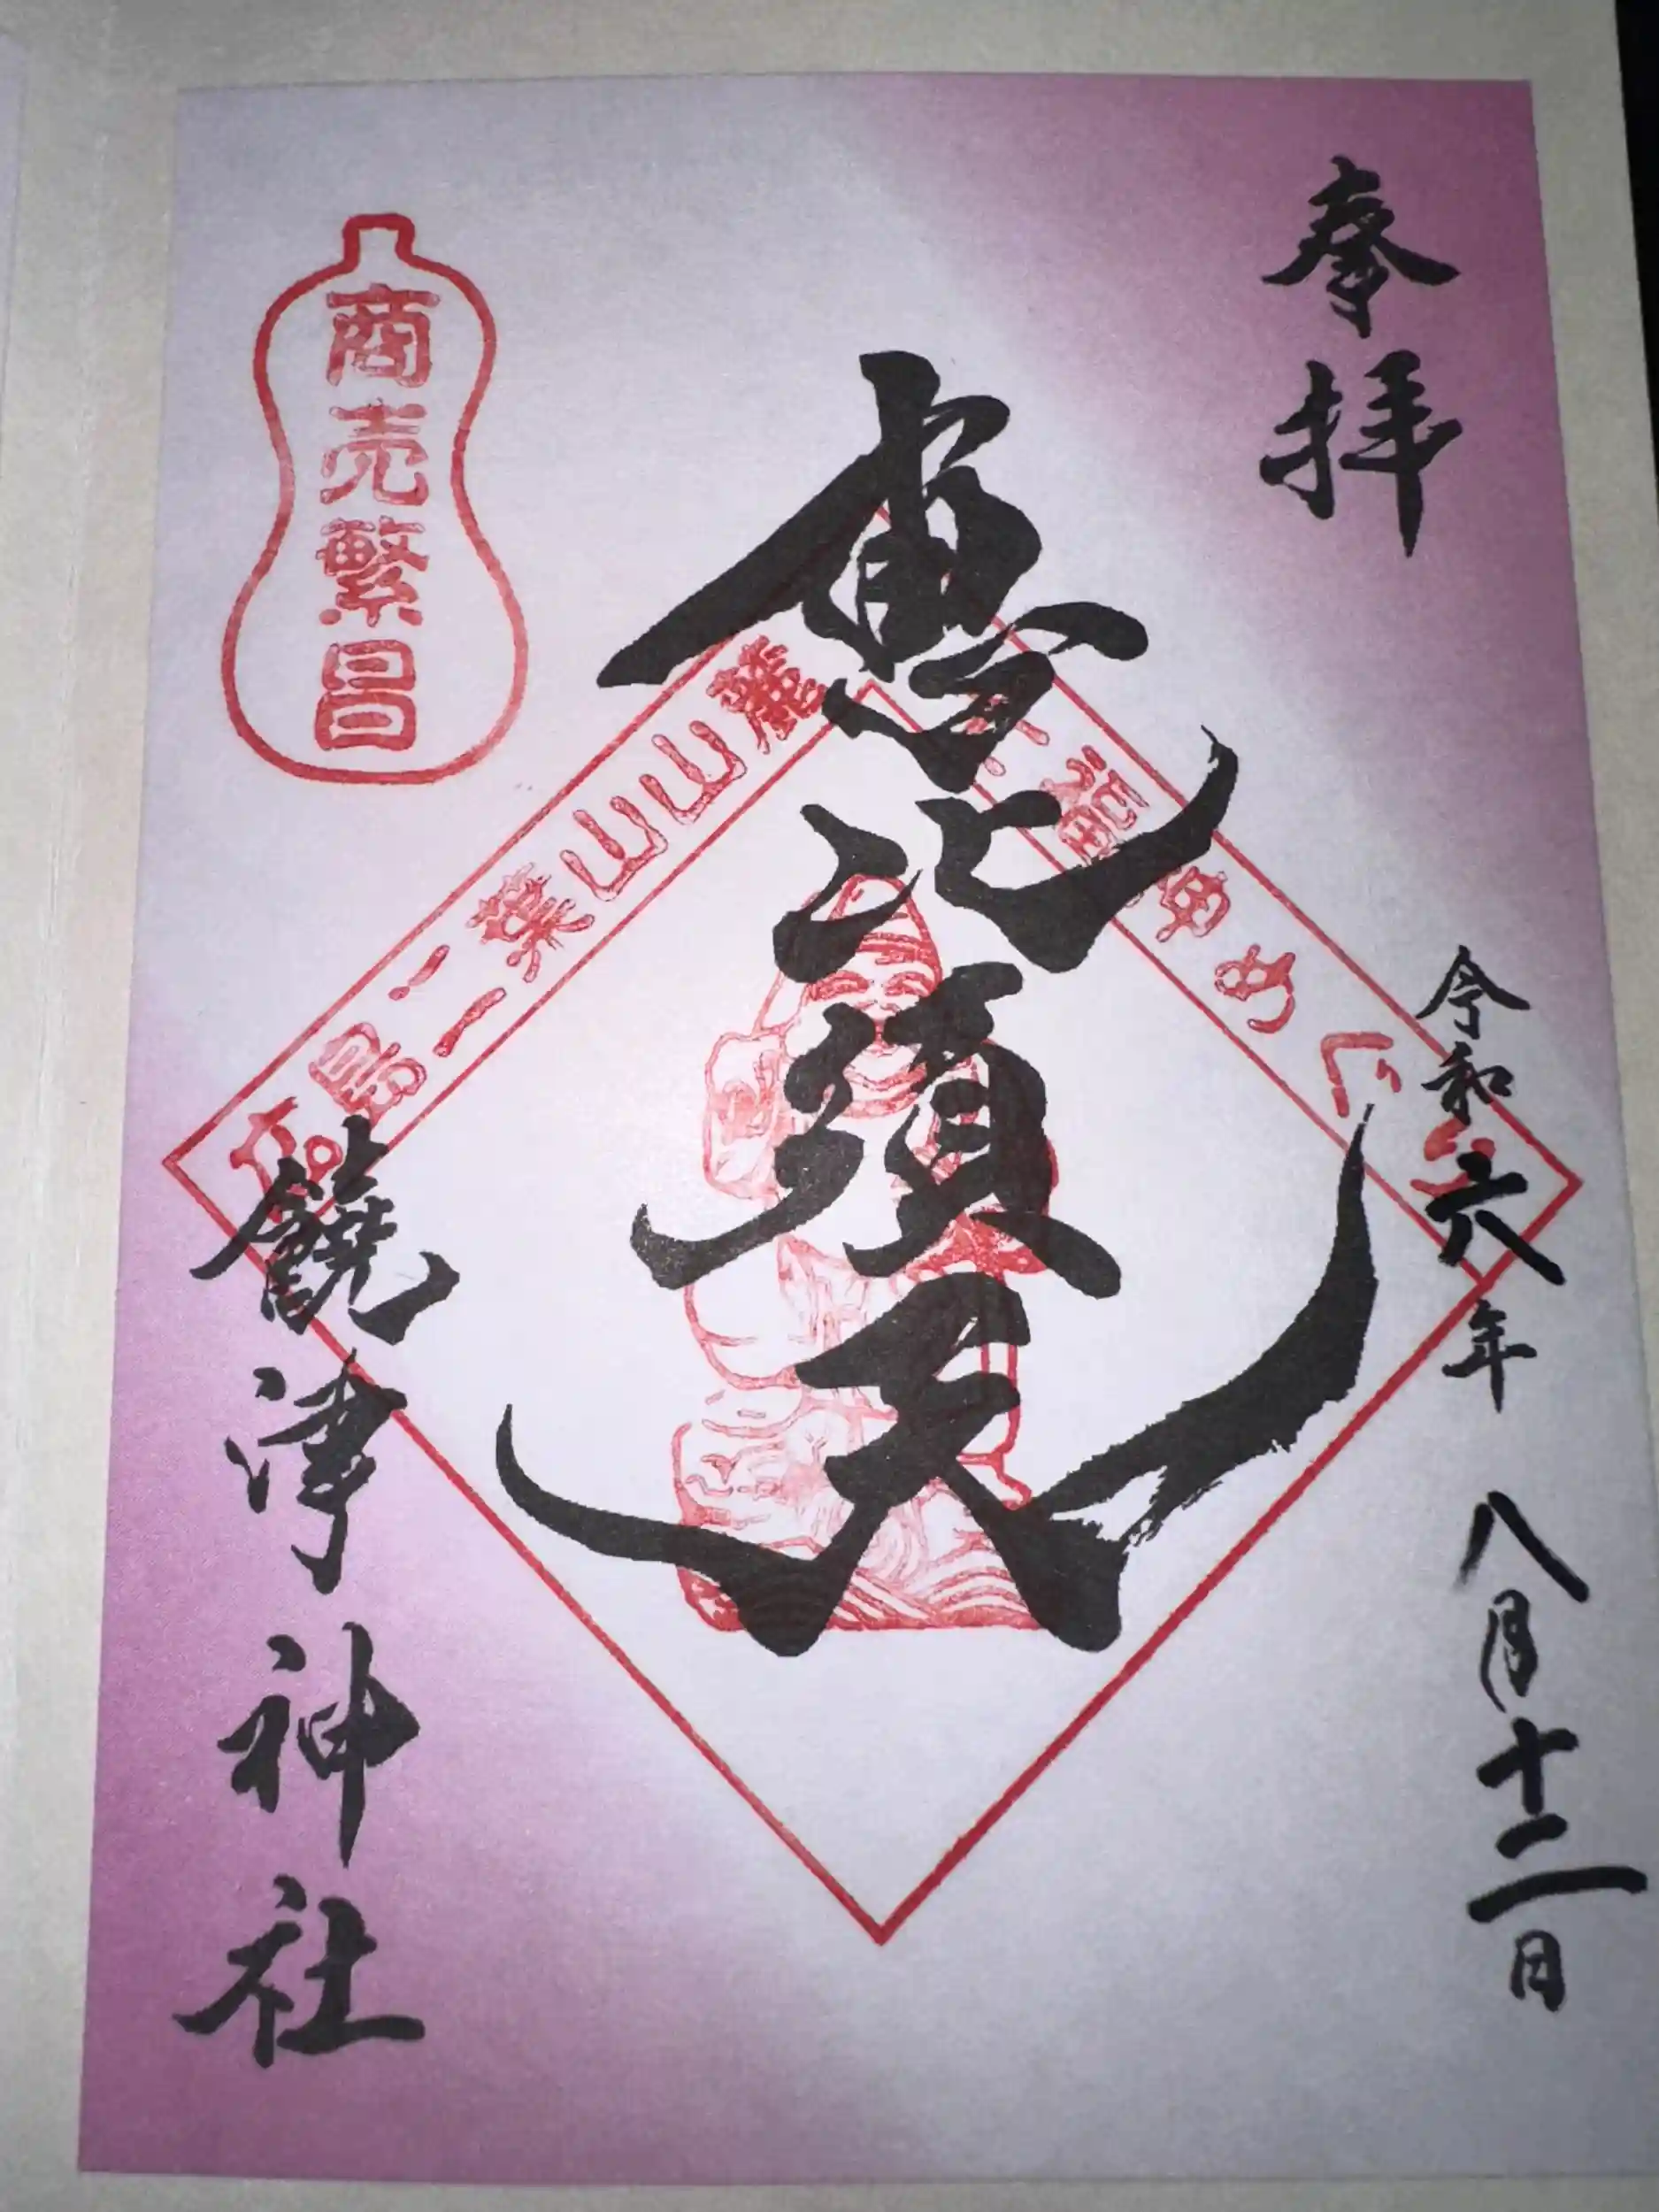 奉拝
令和六年 八月十二日
恵比須天
広島二葉山山麓
七福神めぐり
商売繁昌
饒津神社